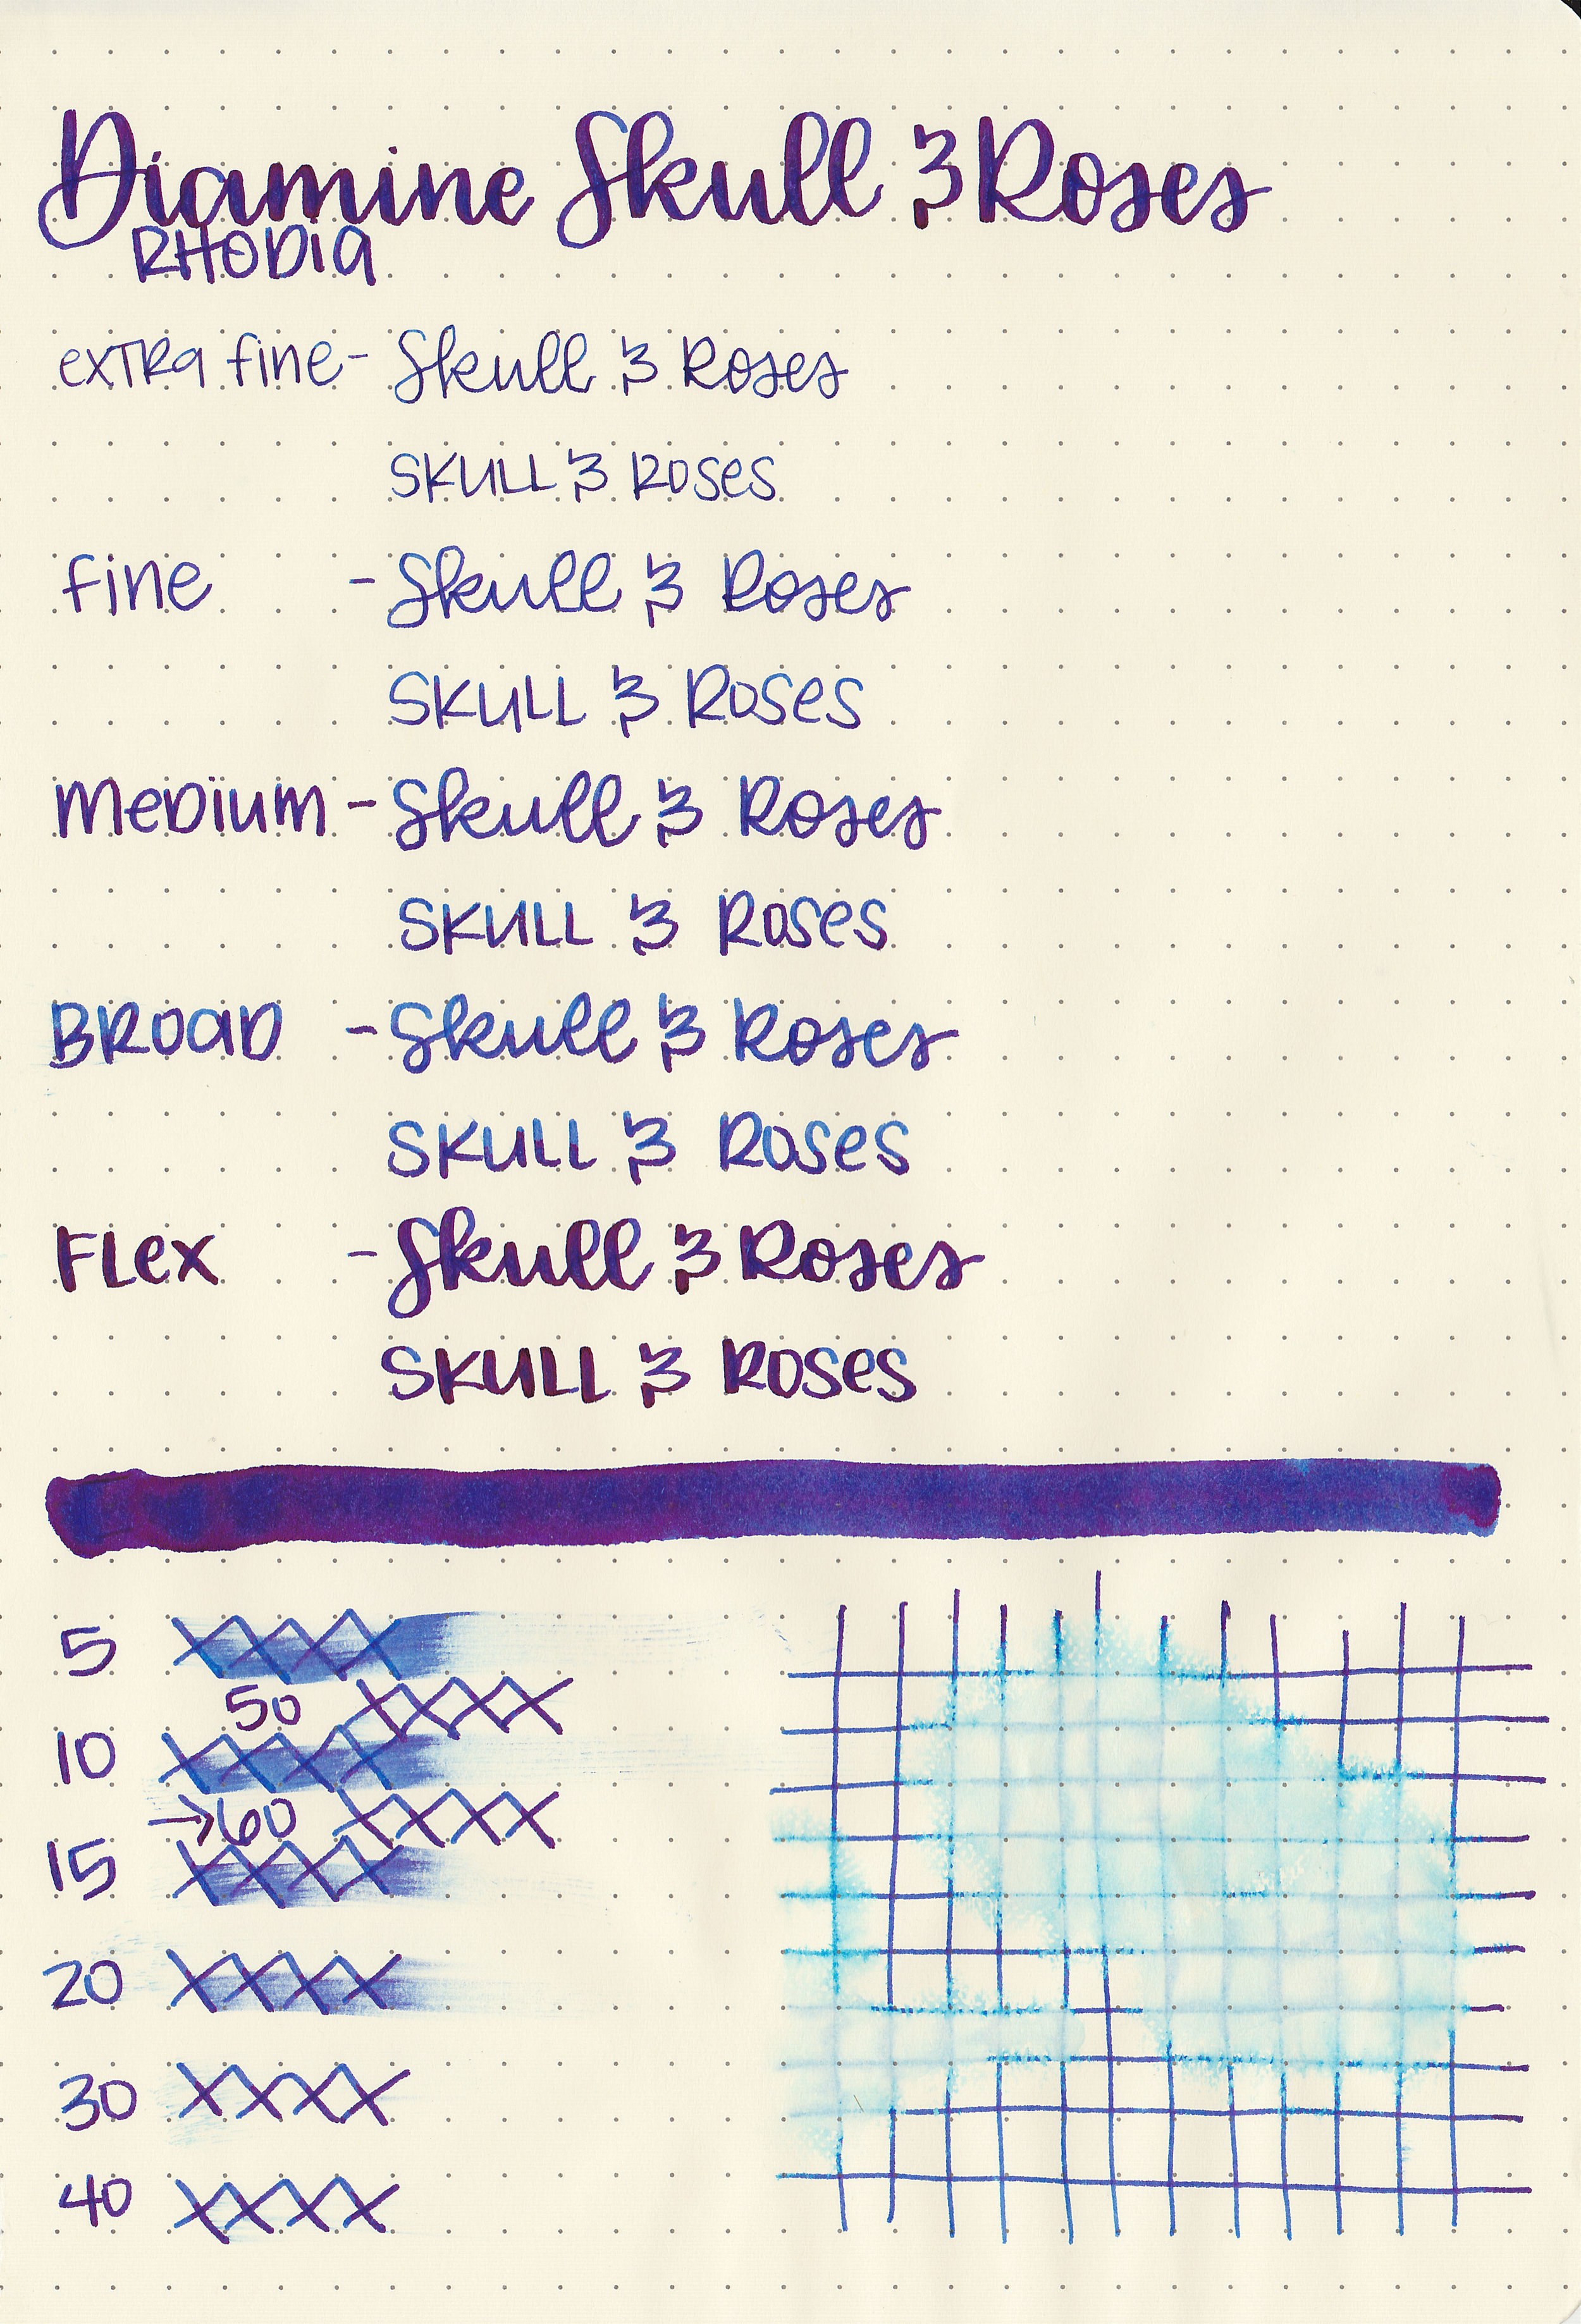 Diamine Skull & Roses
RHODia
exTRa fine - Skull & Roses
SKULL & Roses
fine - Skull & Roses
SKULL & Roses
MeDium - Skull & Roses
SKULL & Roses
BROaD - Skull & Roses
SKULL & Roses
FLex - Skull & Roses
SKULL & ROSES
5 XXXX
50 XXXX
10 XXXX
→60 XXXX
15 XXXX
20 XXXX
30 XXXX
40 XXXX